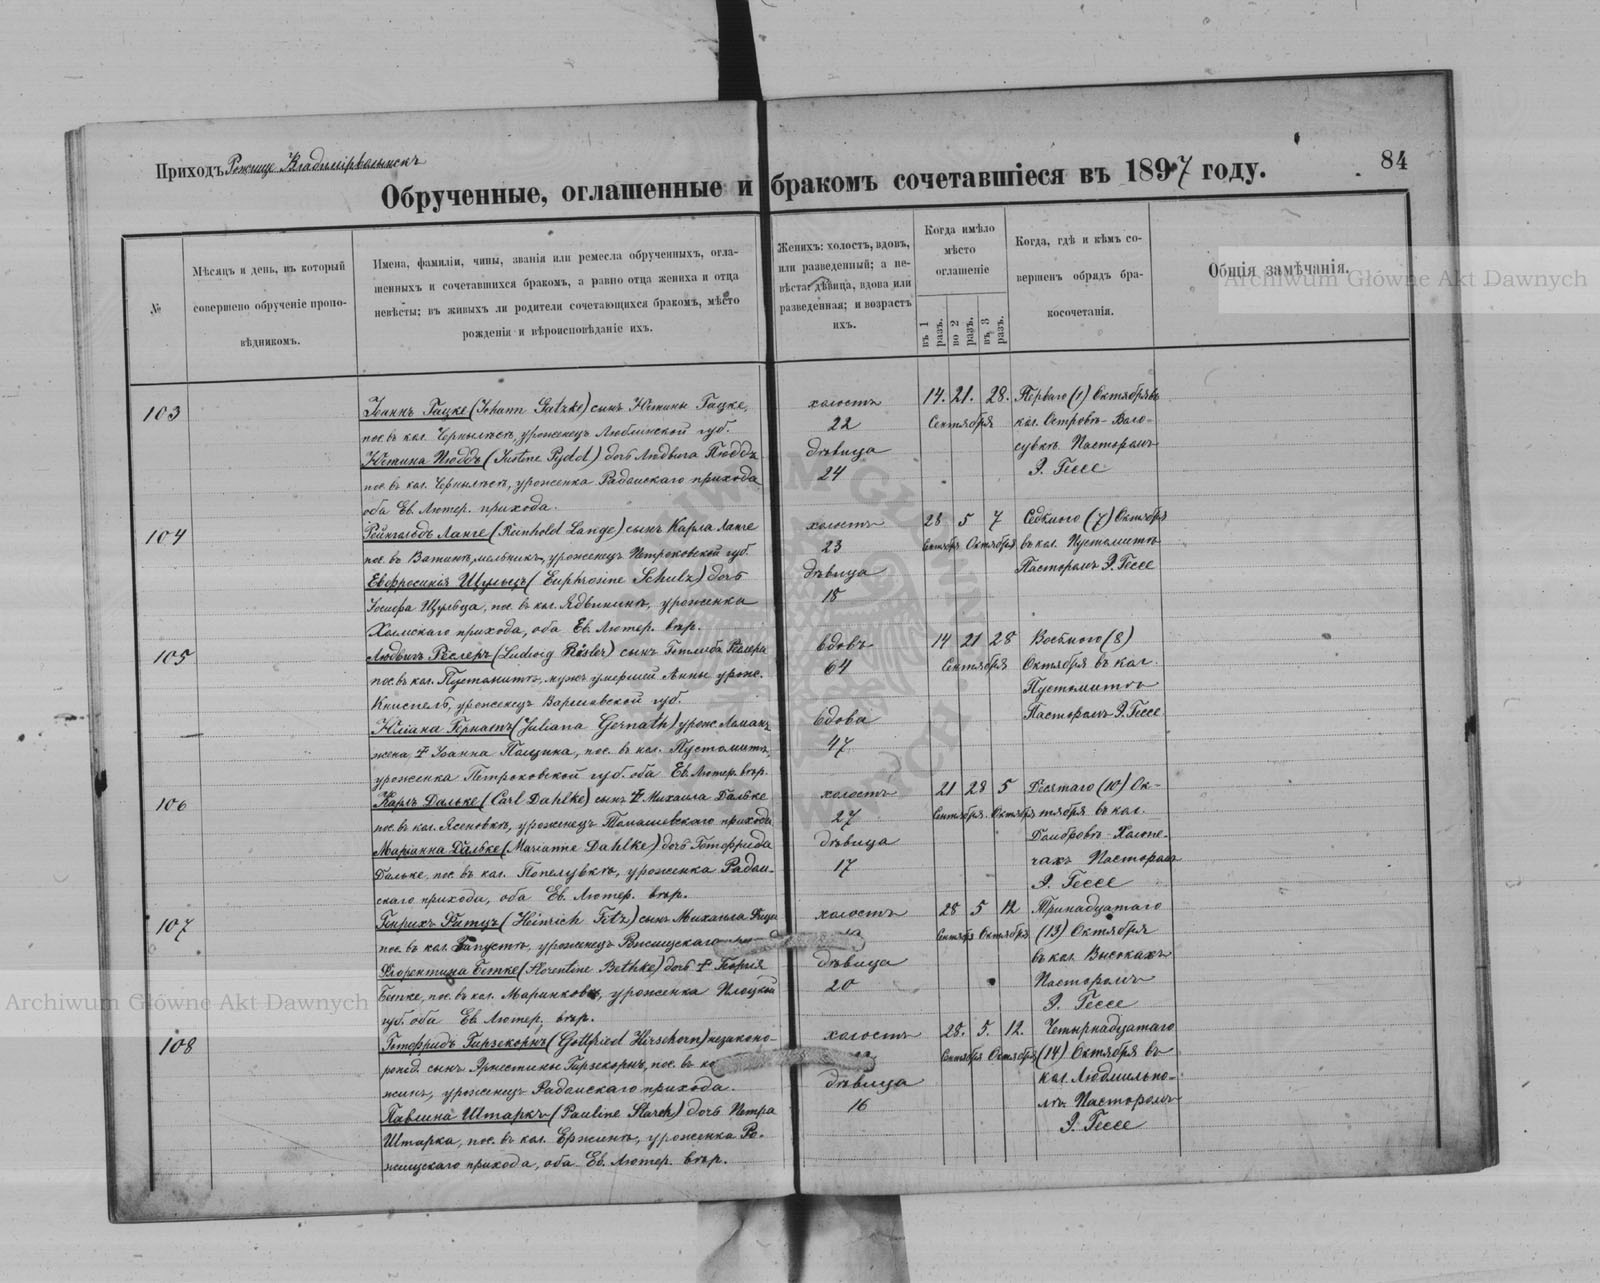 Приходъ Рожище Владимірволынскъ
84
Обрученные, оглашенные и бракомъ сочетавшіеся въ 1897 году.
№
Мѣсяцъ и день, въ который
совершено обрученіе пропо-
вѣдникомъ.
Имена, фамиліи, чины, званія или ремесла обрученныхъ, огла-
шенныхъ и сочетавшихся бракомъ, а равно отца жениха и отца
невѣсты; въ живыхъ ли родители сочетающихся бракомъ, мѣсто
рожденія и вѣроисповѣданіе ихъ.
Женихъ: холостъ, вдовъ,
или разведенный; а не-
вѣста: дѣвица, вдова или
разведенная; и возрастъ
ихъ.
Когда имѣло
мѣсто
оглашеніе
въ 1 разъ.
во 2 разъ.
въ 3 разъ.
Когда, гдѣ и кѣмъ со-
вершенъ обрядъ бра-
косочетанія.
Общія замѣчанія.
Archiwum Główne Akt Dawnych
103
Іоаннъ Гацке (Johann Gatzke) сынъ Юстины Гацке,
пос. въ кол. Чернылѣсъ, уроженецъ Люблинской губ.
Юстина Пюддъ (Justine Pydd) дочь Людвига Пюддъ
пос. въ кол. Чернылѣсъ, уроженка Радомскаго прихода
оба Ев. Лютер. прихода.
холостъ
22
дѣвица
24
14. 21. 28.
Сентября
Перваго (1) Октября въ
кол. Островъ-Воло-
сувкъ Пасторомъ
Э. Гессе
104
Рейнгольдъ Ланге (Reinhold Lange) сынъ Карла Ланге
пос. въ Ватинъ, мельникъ, уроженецъ Петроковской губ.
Евфросинія Шульцъ (Euphrosine Schulz) дочь
Іосифа Шульца, пос. въ кол. Ядвининъ, уроженка
Холмскаго прихода, оба Ев. Лютер. вѣр.
холостъ
23
дѣвица
18
28 5 7
Сентября Октября
Седьмого (7) Октября
въ кол. Пустомитъ
Пасторомъ Э. Гессе
105
Людвигъ Рёслеръ (Ludwig Rösler) сынъ Готлиба Рёслера
пос. въ кол. Пустомитъ, мужъ умершей Анны урож.
Книспель, уроженецъ Варшавской губ.
Юліана Гернатъ (Juliana Gernath) урож. Леманъ
жена ‡ Іоанна Пащика, пос. въ кол. Пустомитъ,
уроженка Петроковской губ. оба Ев. Лютер. вѣр.
вдовъ
64
вдова
47
14 21 28
Сентября
Восьмого (8)
Октября въ кол.
Пустомитъ
Пасторомъ Э. Гессе
106
Карлъ Дальке (Carl Dahlke) сынъ ‡ Михаила Дальке
пос. въ кол. Ясеновкъ, уроженецъ Томашевскаго прихода
Маріанна Дальке (Marianne Dahlke) дочь Готфрида
Дальке, пос. въ кол. Попелувкъ, уроженка Радом-
скаго прихода, оба Ев. Лютер. вѣр.
холостъ
27
дѣвица
17
21 28 5
Сентября Октября
Десятаго (10) Ок-
тября въ кол.
Домбровъ-Холопе-
чахъ Пасторомъ
Э. Гессе
107
Генрихъ Фитцъ (Heinrich Fitz) сынъ Михаила Фица
пос. въ кол. Запустъ, уроженецъ Рожищскаго
Флорентина Бетке (Florentine Bethke) дочь ‡ Георгія
Бетке, пос. въ кол. Маринковъ, уроженка Плоцкой
губ. оба Ев. Лютер. вѣр.
холостъ
дѣвица
20
28 5 12
Сентября Октября
Тринадцатаго
(13) Октября
въ кол. Высокахъ
Пасторомъ
Э. Гессе
Archiwum Główne Akt Dawnych
108
Готфридъ Гирзекорнъ (Gottfried Hirsekorn) незаконо-
рожд. сынъ Эрнестины Гирзекорнъ, пос. въ ко
жинъ, уроженецъ Радомскаго прихода.
Павлина Штаркъ (Pauline Starck) дочь Петра
Штарка, пос. въ кол. Ержинъ, уроженка Ро-
жищскаго прихода, оба Ев. Лютер. вѣр.
холостъ
дѣвица
16
28. 5. 12.
Сентября Октября
Четырнадцатаго
(14) Октября въ
кол. Людмильпо-
лъ Пасторомъ
Э. Гессе